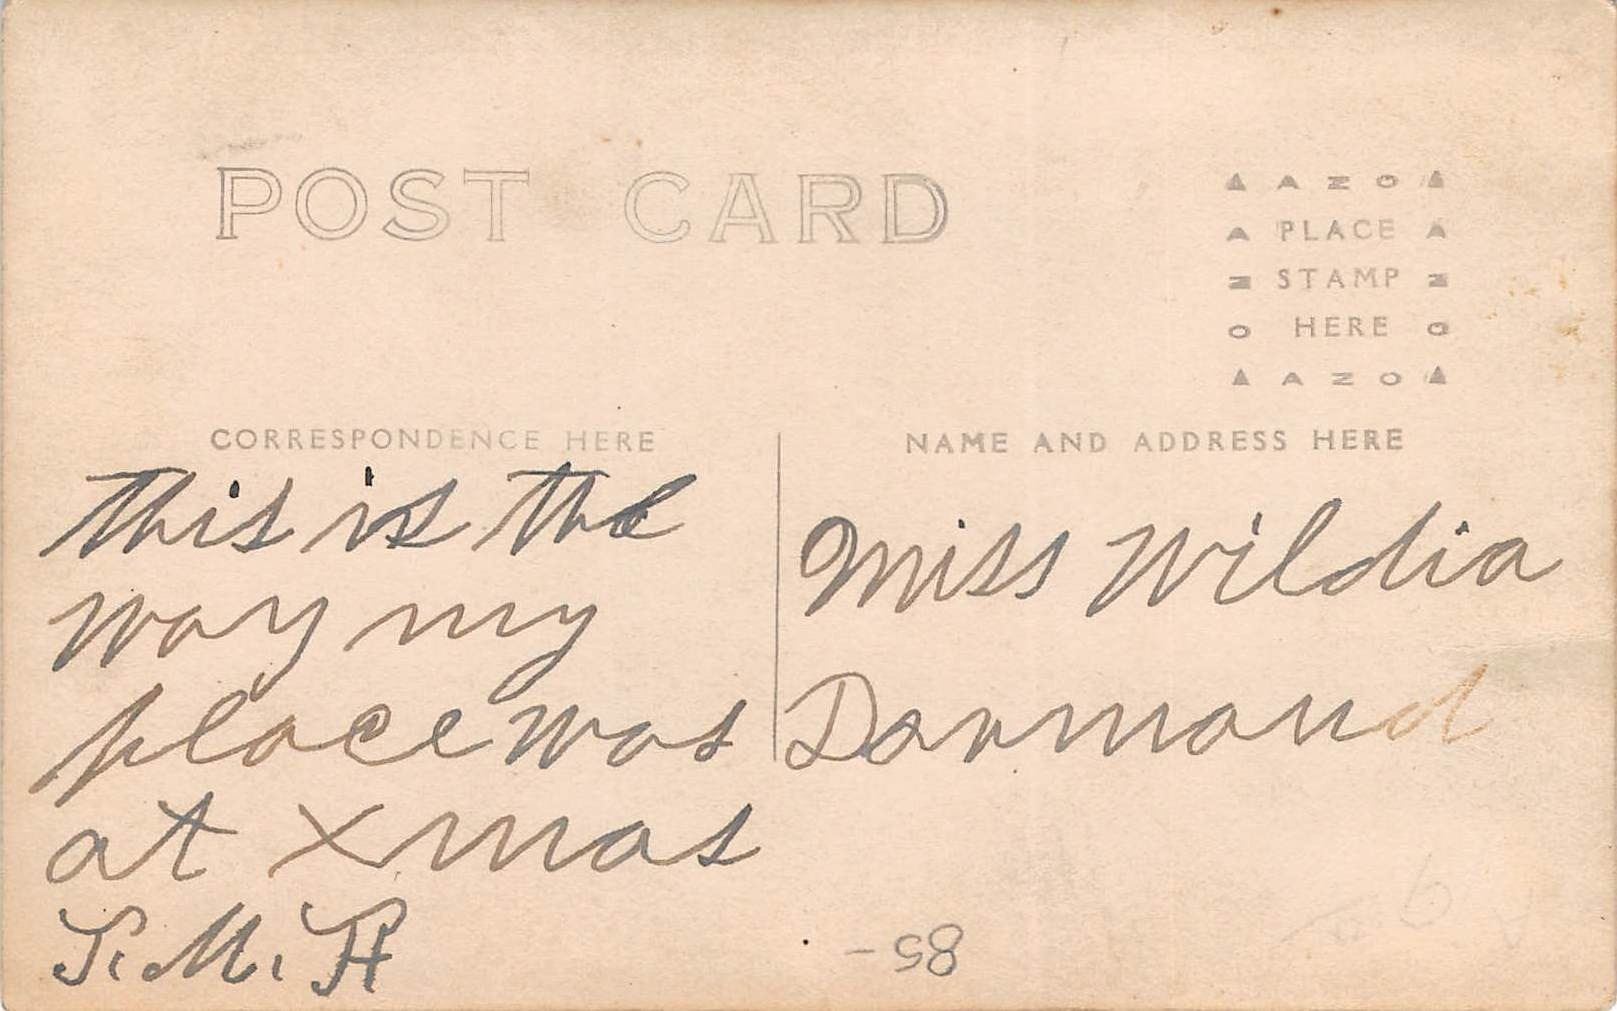 POST CARD
AZO
PLACE
STAMP
HERE
AZO
CORRESPONDENCE HERE
NAME AND ADDRESS HERE
this is the
way my
place was
at xmas
Miss Wildia
85-